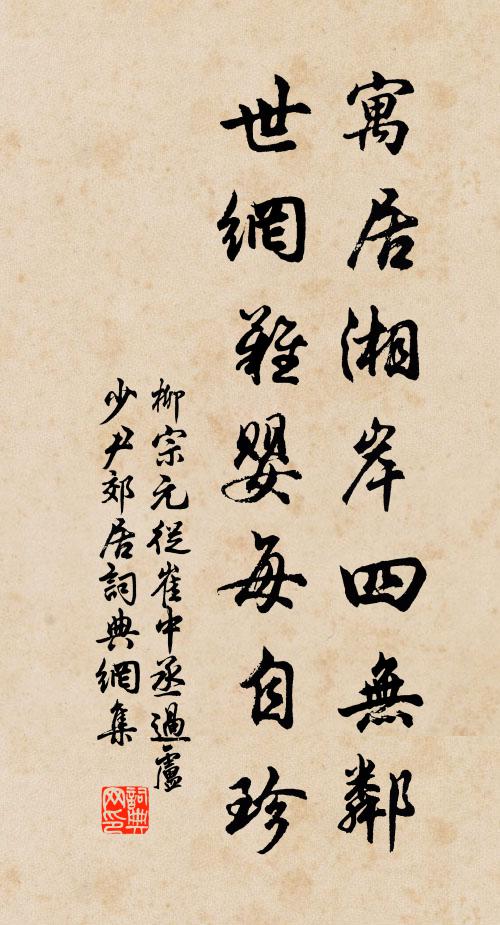 寓居湘岸四無鄰
世網難嬰每自珍
柳宗元從崔中丞過盧
少尹郊居詞典網集
詞典网印